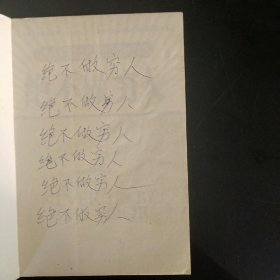 绝不做穷人
绝不做穷人
绝不做穷人
绝不做穷人
绝不做穷人
绝不做穷人